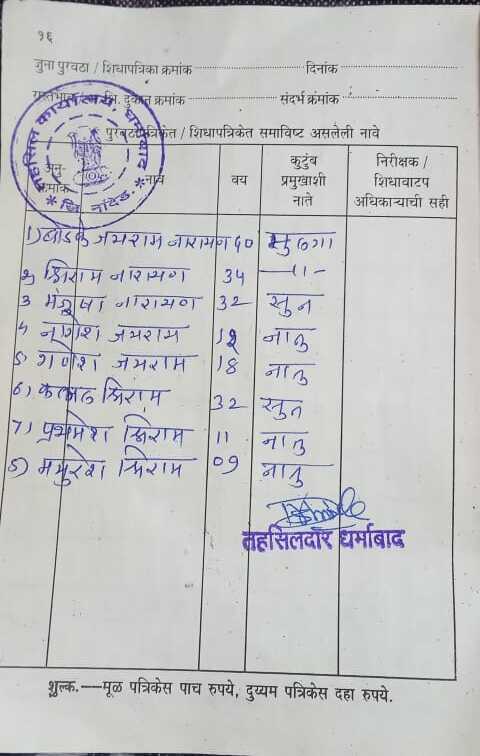 १६
जुना पुरवठा / शिधापत्रिका क्रमांक दिनांक
रास्तभाव दुकान क्रमांक संदर्भ क्रमांक
पुरवठापत्रिकेत / शिधापत्रिकेत समाविष्ट असलेली नावे
अनु-क्रमांक नाव वय कुटुंब प्रमुखाशी नाते निरीक्षक / शिधावाटप अधिकाऱ्याची सही
1) बोडके जयराम नारायण 40 मुलगा
2) श्रिराम नारायण 34 —11-
3 मंजुषा नारायण 32 सुन
4 नागेश जयराम 19 नातु
5) गणेश जयराम 18 नातु
6) कमल श्रिराम 32 सुन
7) प्रथमेश श्रिराम 11 नातु
8) मयुरेश श्रिराम 09 नातु
तहसिलदार धर्माबाद
शुल्क.—मूळ पत्रिकेस पाच रुपये, दुय्यम पत्रिकेस दहा रुपये.